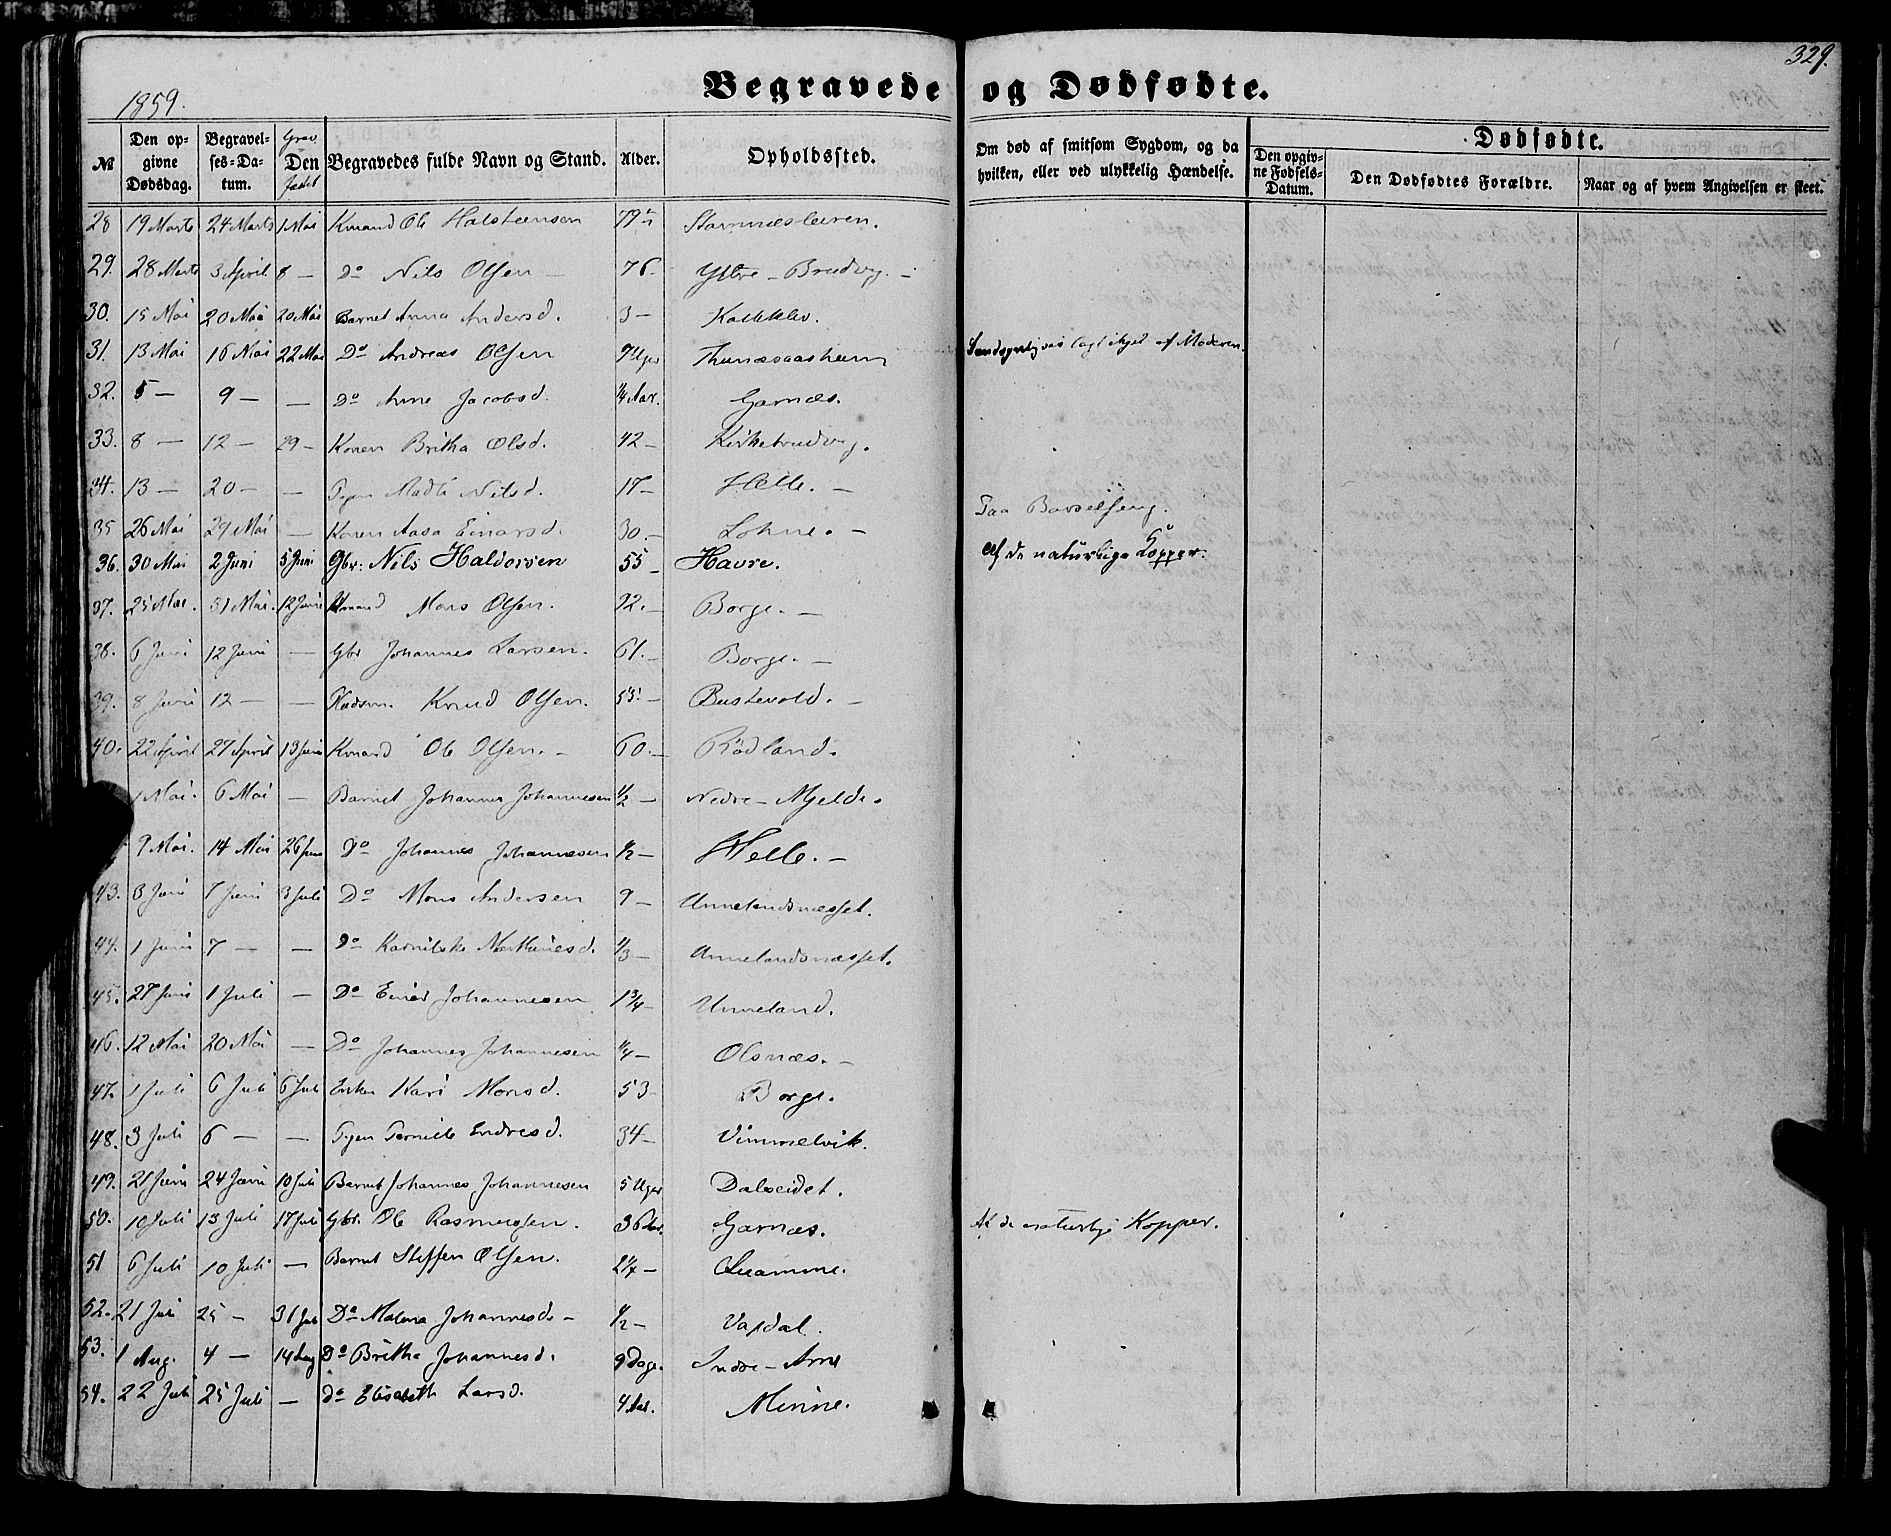 329.
1859.
Begravede og Dødfødte.
№ Den opgivne Dødsdag. Begravelses-Datum. Grav Den fæstet Begravedes fulde Navn og Stand. Alder. Opholdssted. Om død af smitsom Sygdom, og da hvilken, eller ved ulykkelig Hændelse. Dødfødte. Den opgivne Fødsels-Datum. Den Dødfødtes Forældre. Naar og af hvem Angivelsen er skeet.
28 19 Marts 24 Marts 1 Mai Kmand Ole Halsteensen 79
29. 28 Marts 3 April 8 — Do Nils Olsen — 76. Yttre-Brudvig. —
30. 15 Mai 20 Mai 20 Mai Barnet Anna Andersd. 3 — Kalleklev.
31. 13 Mai 16 Mai 22 Mai Do Andreas Olsen 9 Uger Sandsynligviis lagt ihjel af Moderen.
32. 5 — 9 — — Do Anne Jacobsd. 4 Aar. Garnæs.
33. 8 — 12 — 29 — Konen Britha Olsd. 42 — Kirkebrudvig.
34. 13 — 20 — — Pigen Madli Nilsd. 17 — Helle. —
35 26 Mai 29 Mai — Konen Aasa Einarsd. 30. — Lohne. — Paa Barselseng.
36. 30 Mai 2 Juni 5 Juni Gbr: Nils Haldorsen 55 — Havre. Af de natürlige Kopper.
37. 25 Mai. 31 Mai. 12 Juni Kmand Mons Olsen. 92. — Borge. —
38. 6 Juni 12 Juni — Gbr Johannes Larsen. 61. — Borge. —
39. 8 Juni 12 — — Knud Olsen. 55. — Bustevold. —
40. 22 April 27 April 13 Juni Kmand Ole Olsen. — 60. — Rödland.
1 Mai. 6 Mai — Barnet Johannes Johannesen ½ — Nedre-Mjelde.
9 Mai. 14 Mai 26 Juni Do Johannes Johannesen ½ — Helle. —
43. 3 Juni 7 Juni 3 Juli Do Mons Andersen 9 — Unnelandsnæsset.
44. 1 Juni 7 — — Do ⅓ — Unnelandsnæsset.
45. 27 Juni 1 Juli — Do Einar Johannesen 1¾ — Unneland.
46. 12 Mai 20 Mai — Do Johannes Johannesen ¼ — Olsnæs. —
47. 1 Juli 6 Juli 6 Juli Enken Kari Monsd. 53 — Borge.
48. 3 Juli 6 — — Pigen Pernille Endresd. 34 — Vimmelvik.
49. 21 Juni 24 Juni 10 Juli Barnet Johannes Johannesen 5 Uger Dalseidet.
50. 10 Juli 13 Juli 17 Juli Gbr. Ole Rasmussen. 36 Aar. Garnæs. Af de naturlige Kopper.
51 6 Juli 10 Juli — Barnet Steffen Olsen. 2¼ — Qvamme.
52. 21 Juli 25 — 31 Juli Do Malena Johannesd. — ½ — Vaxdal.
53. 1 Aug. 4 — 14 Aug Do Britha Johannesd. 9 Dage. Indre-Arne
54. 22 Juli 25 Juli — do Elisabeth Larsd. 4 Aar. Minne.